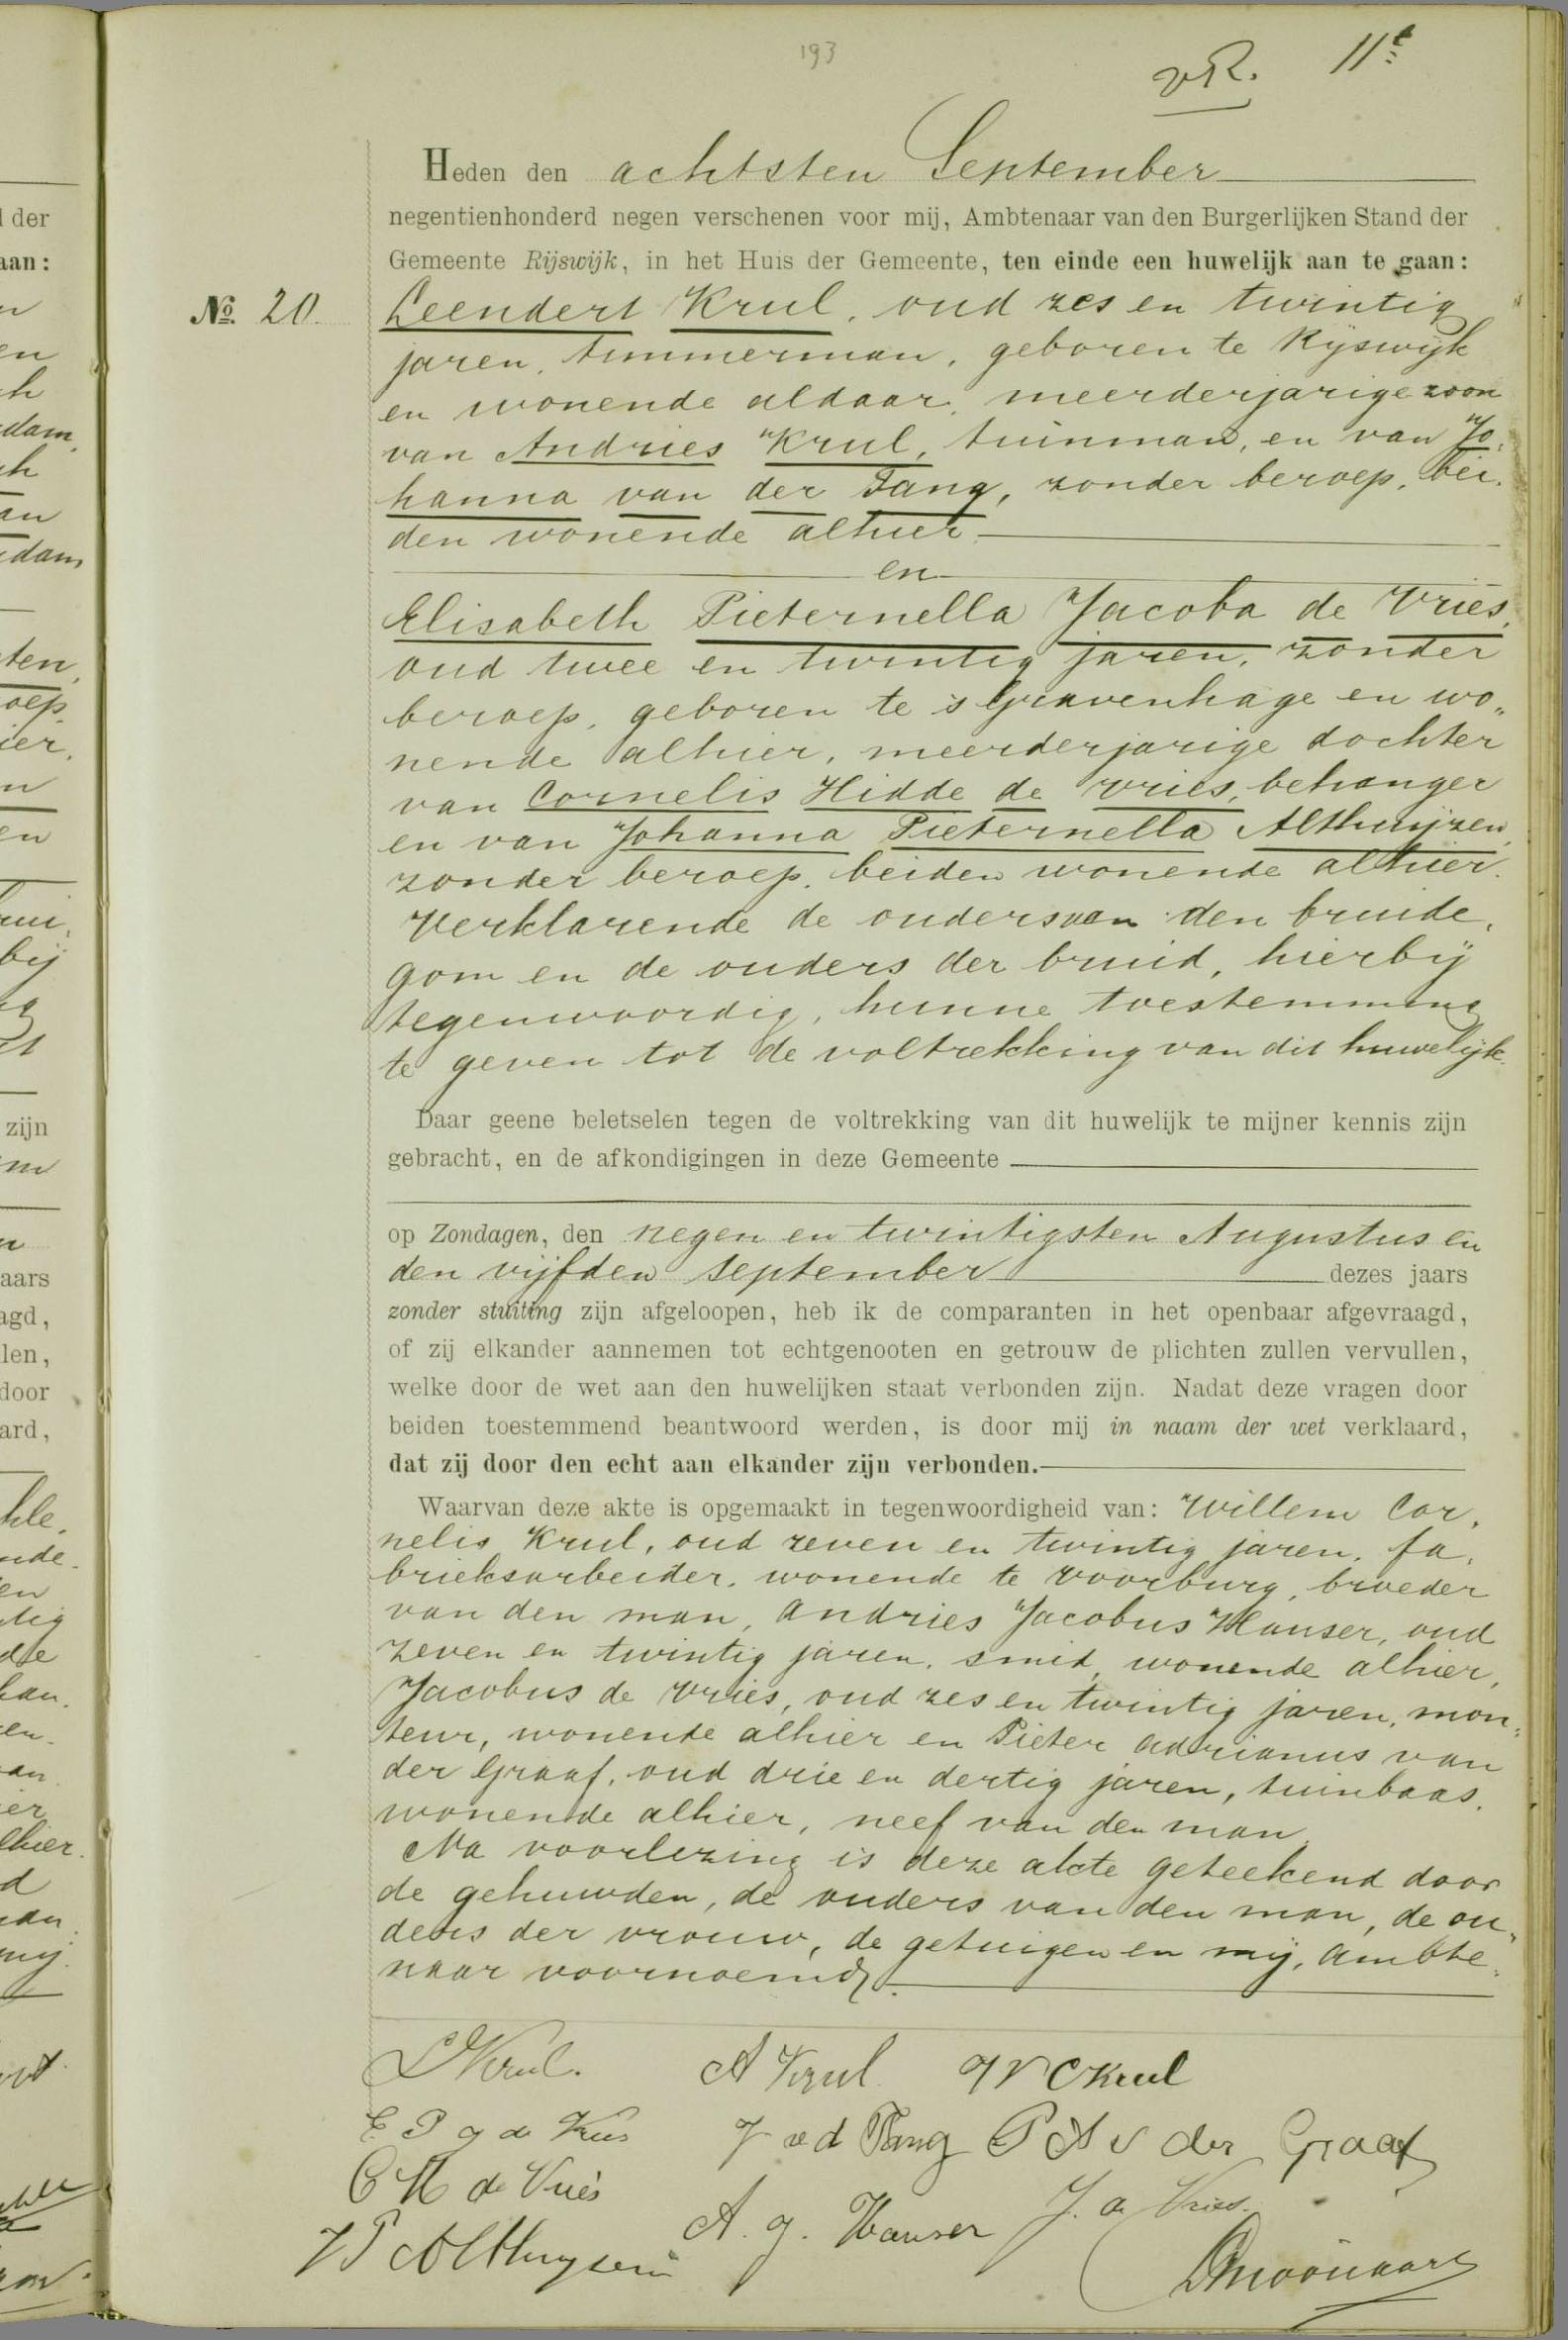 193
vR. 11e
Heden den achtsten September
negentienhonderd negen verschenen voor mij, Ambtenaar van den Burgerlijken Stand der
Gemeente Rijswijk, in het Huis der Gemeente, ten einde een huwelijk aan te gaan:
No. 20. Leendert Krul, oud zes en twintig
jaren, timmerman, geboren te Rijswijk
en wonende aldaar, meerderjarige zoon
van Andries Krul, tuinman, en van Jo„
hanna van der Tang, zonder beroep, bei„
den wonende alhier
en
Elisabeth Pieternella Jacoba de Vries,
oud twee en twintig jaren, zonder
beroep, geboren te 's Gravenhage en wo„
nende alhier, meerderjarige dochter
van Cornelis Hidde de Vries, behanger
en van Johanna Pieternella Althuijzen,
zonder beroep, beiden wonende alhier.
Verklarende de ouders van den bruide„
gom en de ouders der bruid, hierbij
tegenwoordig, hunne toestemming
te geven tot de voltrekking van dit huwelijk.
Daar geene beletselen tegen de voltrekking van dit huwelijk te mijner kennis zijn
gebracht, en de afkondigingen in deze Gemeente
op Zondagen, den negen en twintigsten Augustus en
den vijfden September dezes jaars
zonder stuiting zijn afgeloopen, heb ik de comparanten in het openbaar afgevraagd,
of zij elkander aannemen tot echtgenooten en getrouw de plichten zullen vervullen,
welke door de wet aan den huwelijken staat verbonden zijn. Nadat deze vragen door
beiden toestemmend beantwoord werden, is door mij in naam der wet verklaard,
dat zij door den echt aan elkander zijn verbonden.
Waarvan deze akte is opgemaakt in tegenwoordigheid van: Willem Cor„
nelis Krul, oud zeven en twintig jaren, fa„
brieksarbeider, wonende te Voorburg, broeder
van den man, Andries Jacobus Hauser, oud
zeven en twintig jaren, smid, wonende alhier,
Jacobus de Vries, oud zes en twintig jaren, mon„
teur, wonende alhier en Pieter Adrianus van
der Graaf, oud drie en dertig jaren, tuinbaas,
wonende alhier, neef van den man.
Na voorlezing is deze akte geteekend door
de gehuwden, de ouders van den man, de ou„
ders der vrouw, de getuigen en mij, Ambte„
naar voornoemd.
L Krul. A Krul W C Krul
E P J de Vries J v d Tang P A v der Graaf
C H de Vries
A. J. Hauser J. de Vries.
J P Althuysen